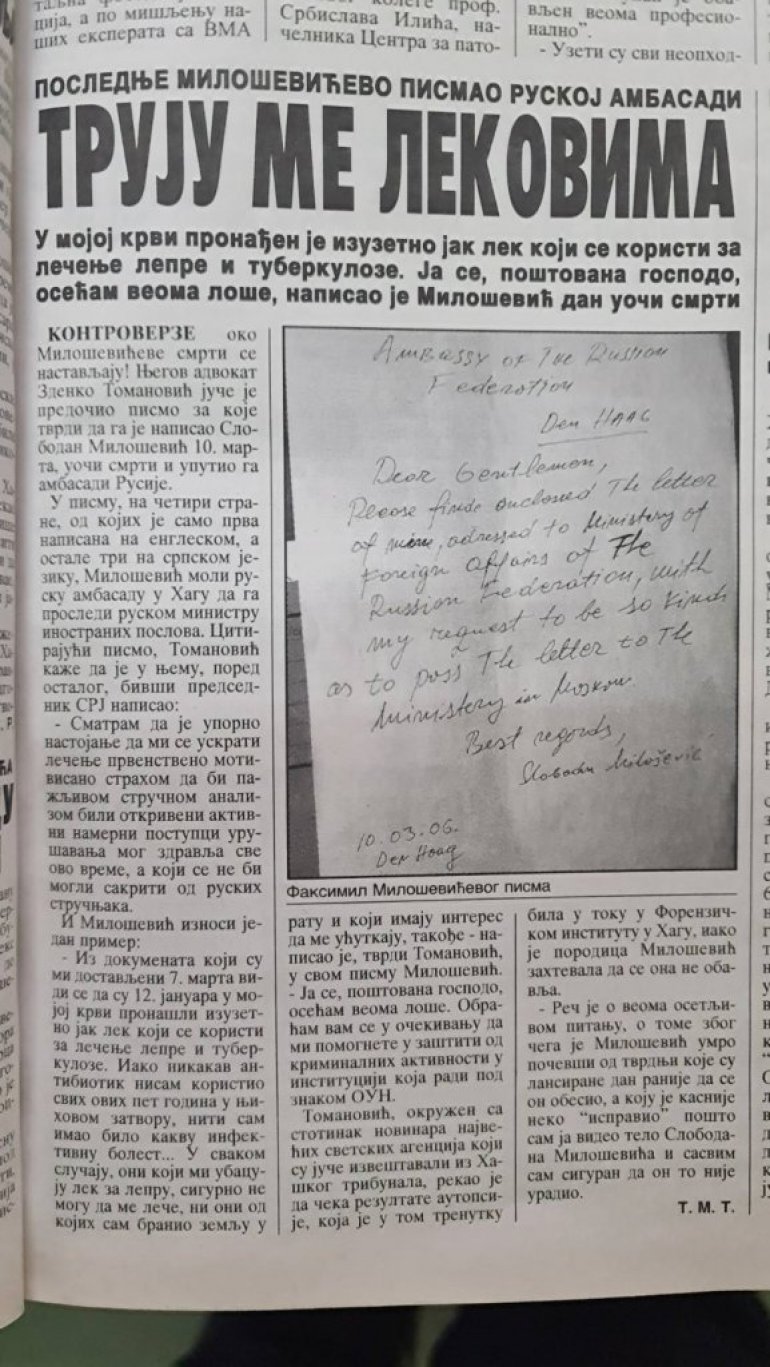 ција, а по мишљењу на-
ших експерата са ВМА
колеге проф.
Србислава Илића, на-
челника Центра за пато-
вљен веома професио-
нално”.
- Узети су сви неопход-
ПОСЛЕДЊЕ МИЛОШЕВИЋЕВО ПИСМАО РУСКОЈ АМБАСАДИ
ТРУЈУ МЕ ЛЕКОВИМА
У мојој крви пронађен је изузетно јак лек који се користи за
лечење лепре и туберкулозе. Ја се, поштована господо,
осећам веома лоше, написао је Милошевић дан уочи смрти
КОНТРОВЕРЗЕ око
Милошевићеве смрти се
настављају! Његов адвокат
Зденко Томановић јуче је
предочио писмо за које
тврди да га је написао Сло-
бодан Милошевић 10. мар-
та, уочи смрти и упутио га
амбасади Русије.
У писму, на четири стра-
не, од којих је само прва
написана на енглеском, а
остале три на српском је-
зику, Милошевић моли ру-
ску амбасаду у Хагу да га
проследи руском министру
иностраних послова. Цити-
рајући писмо, Томановић
каже да је у њему, поред
осталог, бивши председ-
ник СРЈ написао:
- Сматрам да је упорно
настојање да ми се ускрати
лечење првенствено моти-
висано страхом да би па-
жљивом стручном анали-
зом били откривени актив-
ни намерни поступци уру-
шавања мог здравља све
ово време, а који се не би
могли сакрити од руских
стручњака.
И Милошевић износи је-
дан пример:
- Из докумената који су
ми достављени 7. марта ви-
ди се да су 12. јануара у мо-
јој крви пронашли изузет-
но јак лек који се користи
за лечење лепре и тубер-
кулозе. Иако никакав ан-
тибиотик нисам користио
свих ових пет година у њи-
ховом затвору, нити сам
имао било какву инфек-
тивну болест... У сваком
случају, они који ми убацу-
ју лек за лепру, сигурно не
могу да ме лече, ни они од
којих сам бранио земљу у
Ambassy of The Russion
Federation
Den HAAG
Dear Gentlemen,
Please finde enclosed The letter
of mine, adressed to Ministery of
Foreign Affairs of The
Russion Federation, with
my request to be so kind
as to pass The letter to The
Ministery in Moskow.
Best regards,
Slobodan Milošević
10.03.06.
Den Haag
Факсимил Милошевићевог писма
рату и који имају интерес
да ме ућуткају, такође - на-
писао је, тврди Томановић,
у свом писму Милошевић.
- Ја се, поштована господо,
осећам веома лоше. Обра-
ћам вам се у очекивању да
ми помогнете у заштити од
криминалних активности у
институцији која ради под
знаком ОУН.
Томановић, окружен са
стотинак новинара најве-
ћих светских агенција који
су јуче извештавали из Ха-
шког трибунала, рекао је
да чека резултате аутопси-
је, која је у том тренутку
била у току у Форензич-
ком институту у Хагу, иако
је породица Милошевић
захтевала да се она не оба-
вља.
- Реч је о веома осетљи-
вом питању, о томе због
чега је Милошевић умро
почевши од тврдњи које су
лансиране дан раније да се
он обесио, а коју је касније
неко “исправио” пошто
сам ја видео тело Слобода-
на Милошевића и сасвим
сам сигуран да он то није
урадио.
Т. М. Т.